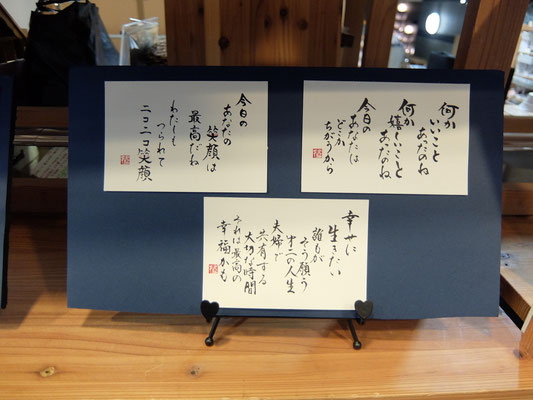 今日の
あなたの
笑顔は
最高だね
わたしも
つられて
ニコニコ笑顔
何か
いいこと
あったのね
何か
嬉しいこと
あったのね
今日の
あなたは
どこか
ちがうから
幸せに
生きたい
誰もが
そう願う
才二の人生
夫婦で
共有する
大切な時間
それは最高の
幸福かも